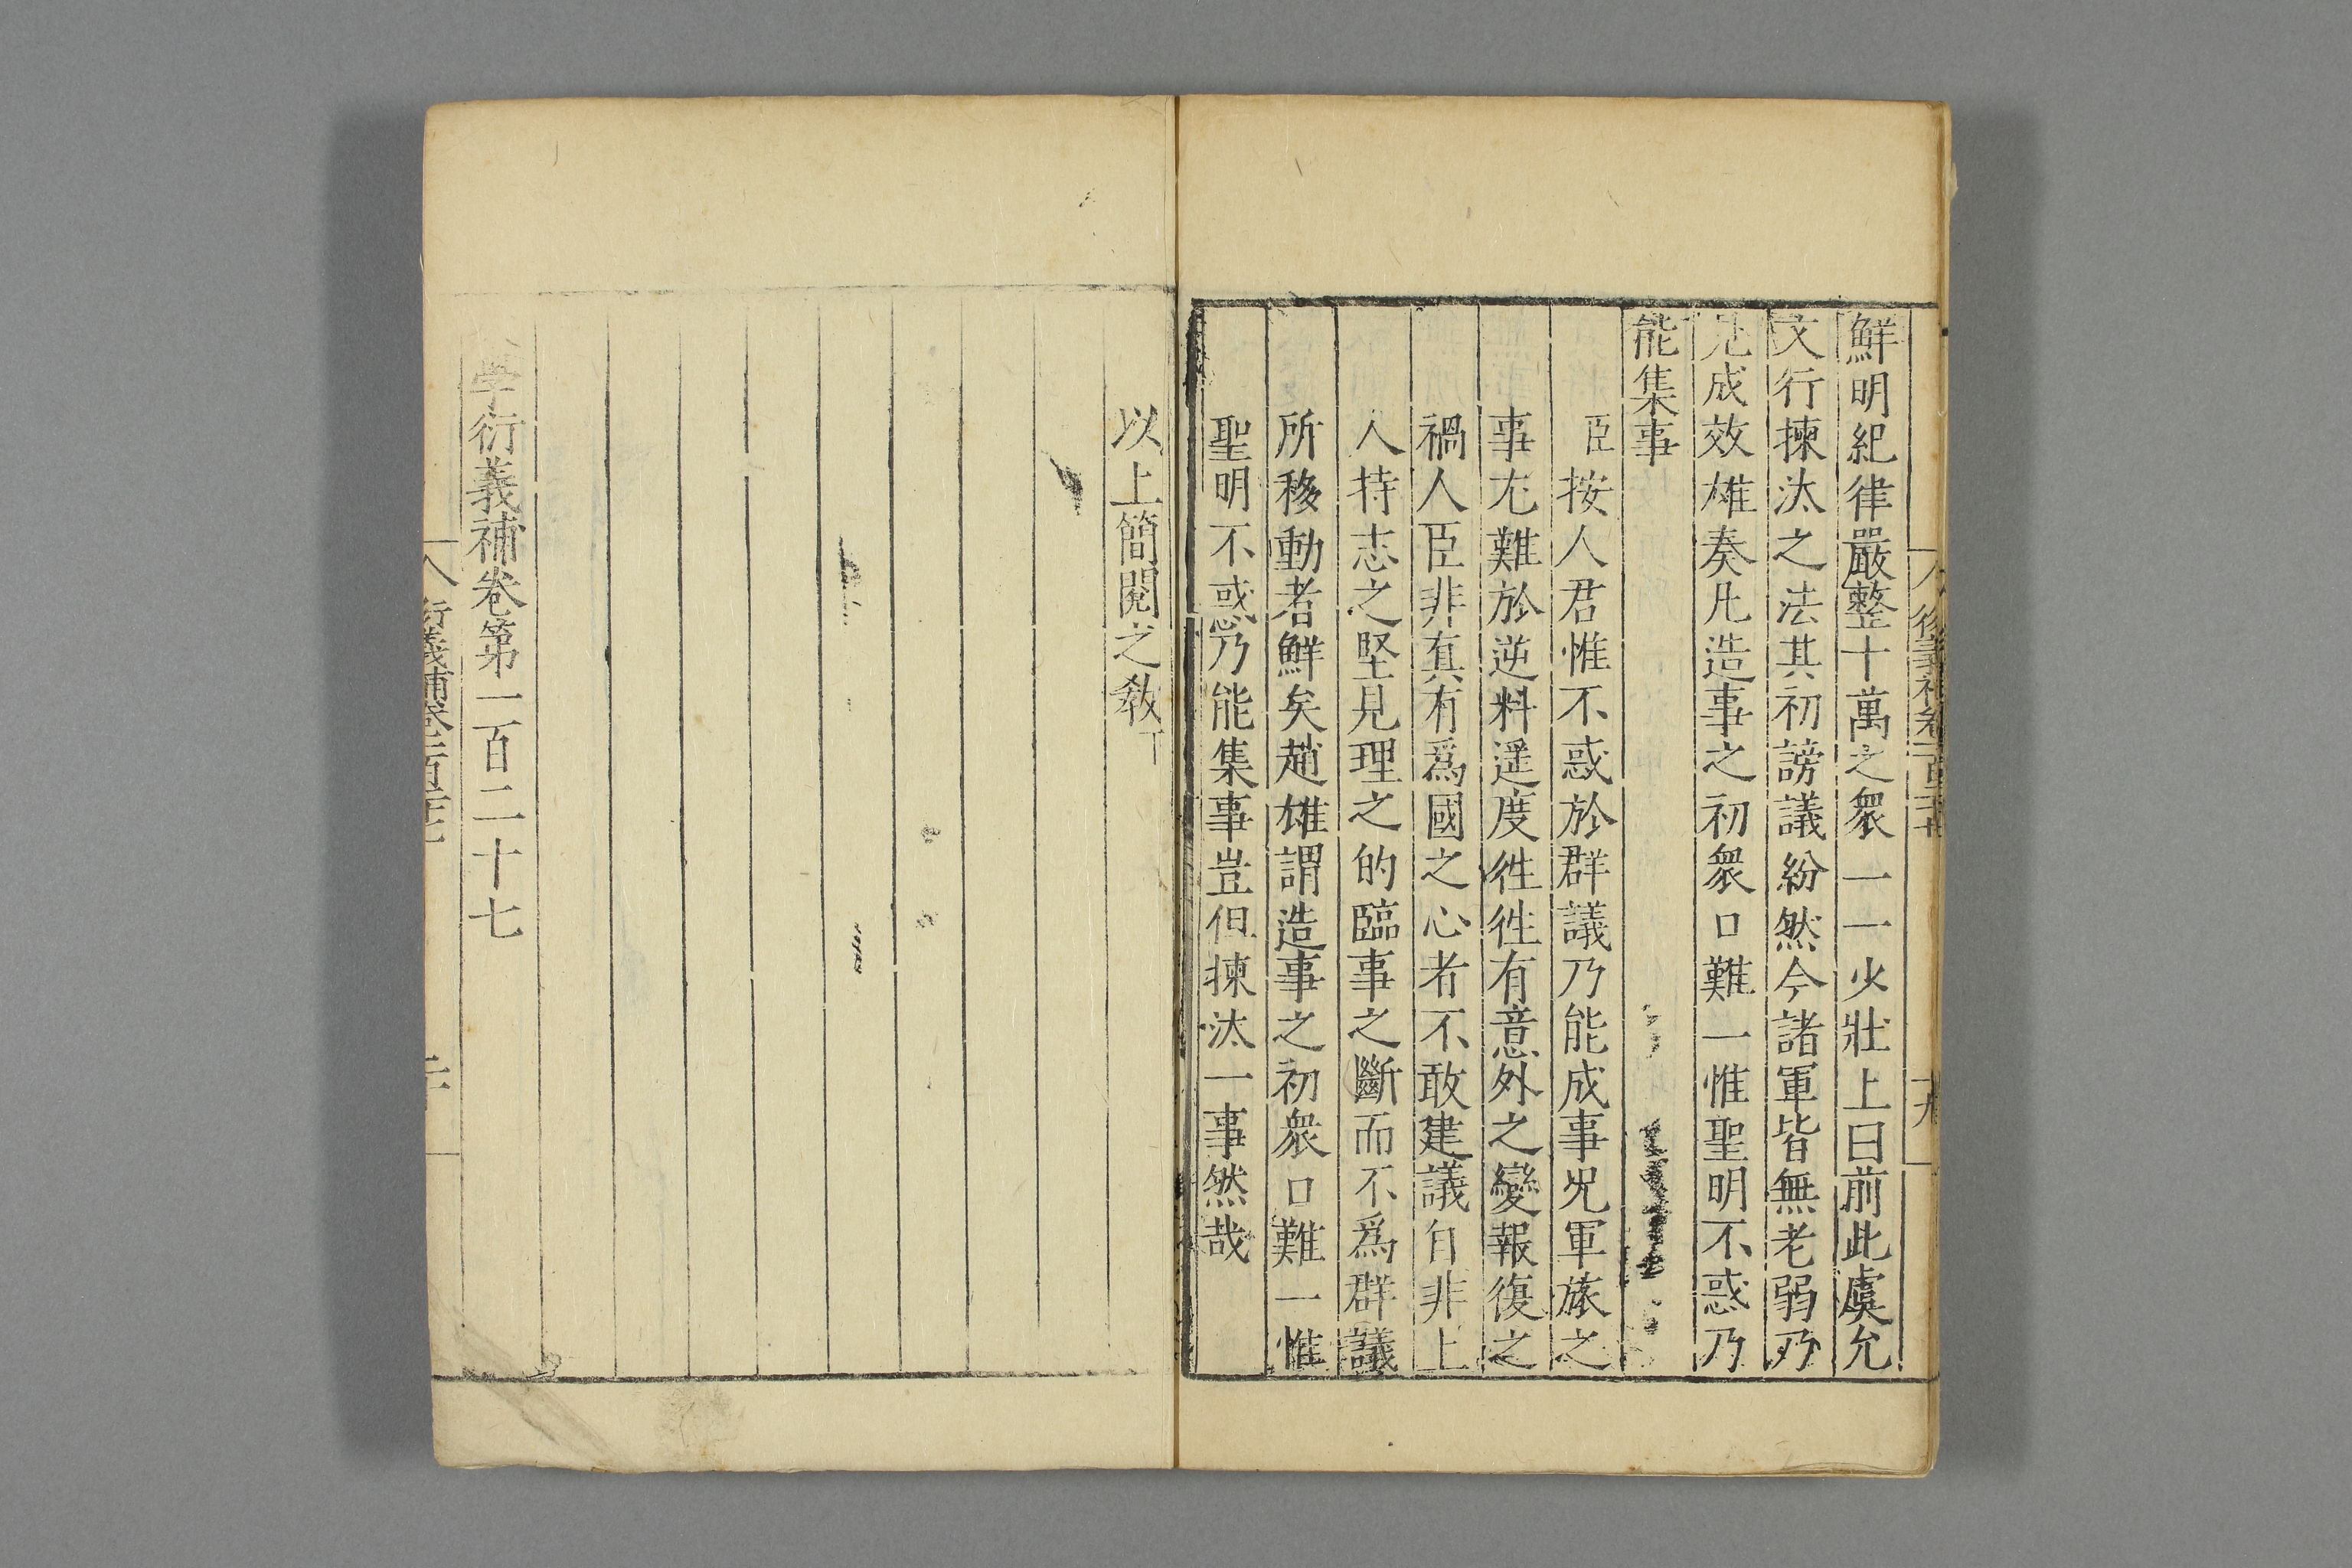 鮮明紀律嚴整十萬之衆一一火壯上曰前此虞允
文行揀汰之法其初謗議紛然今諸軍皆無老弱乃
見成效雄奏凡造事之初衆口難一惟聖明不惑乃
能集事
臣按人君惟不惑於群議乃能成事況軍旅之
事尤難於逆料遥度徃徃有意外之變報復之
禍人臣非真有爲國之心者不敢建議自非上
人持志之堅見理之的臨事之斷而不爲群議
所移動者鮮矣趙雄謂造事之初衆口難一惟
聖明不惑乃能集事豈但揀汰一事然哉
以上簡閱之教下
學衍義補卷第一百二十七